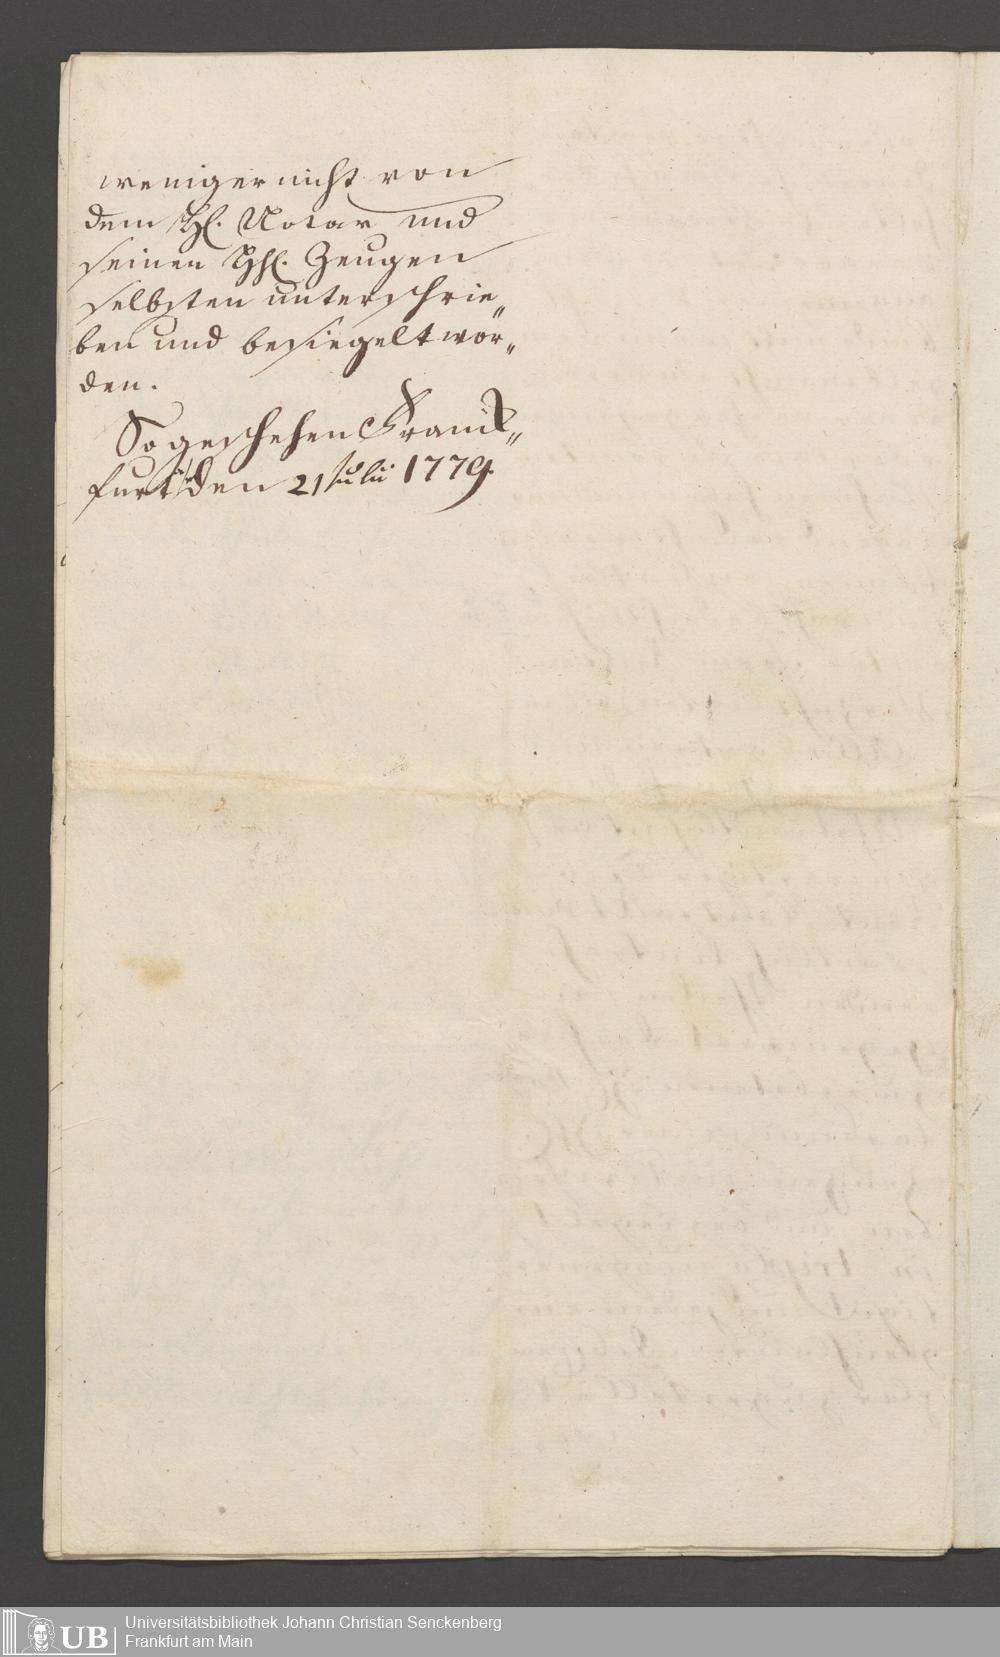 weniger nicht von
dem H. Notar und
seinen HH. Zeugen
selbsten unterschrie„
ben und besiegelt wor„
den.
So geschehen Franck„
furt den 21 Julii 1779.
UB
Universitätsbibliothek Johann Christian Senckenberg
Frankfurt am Main